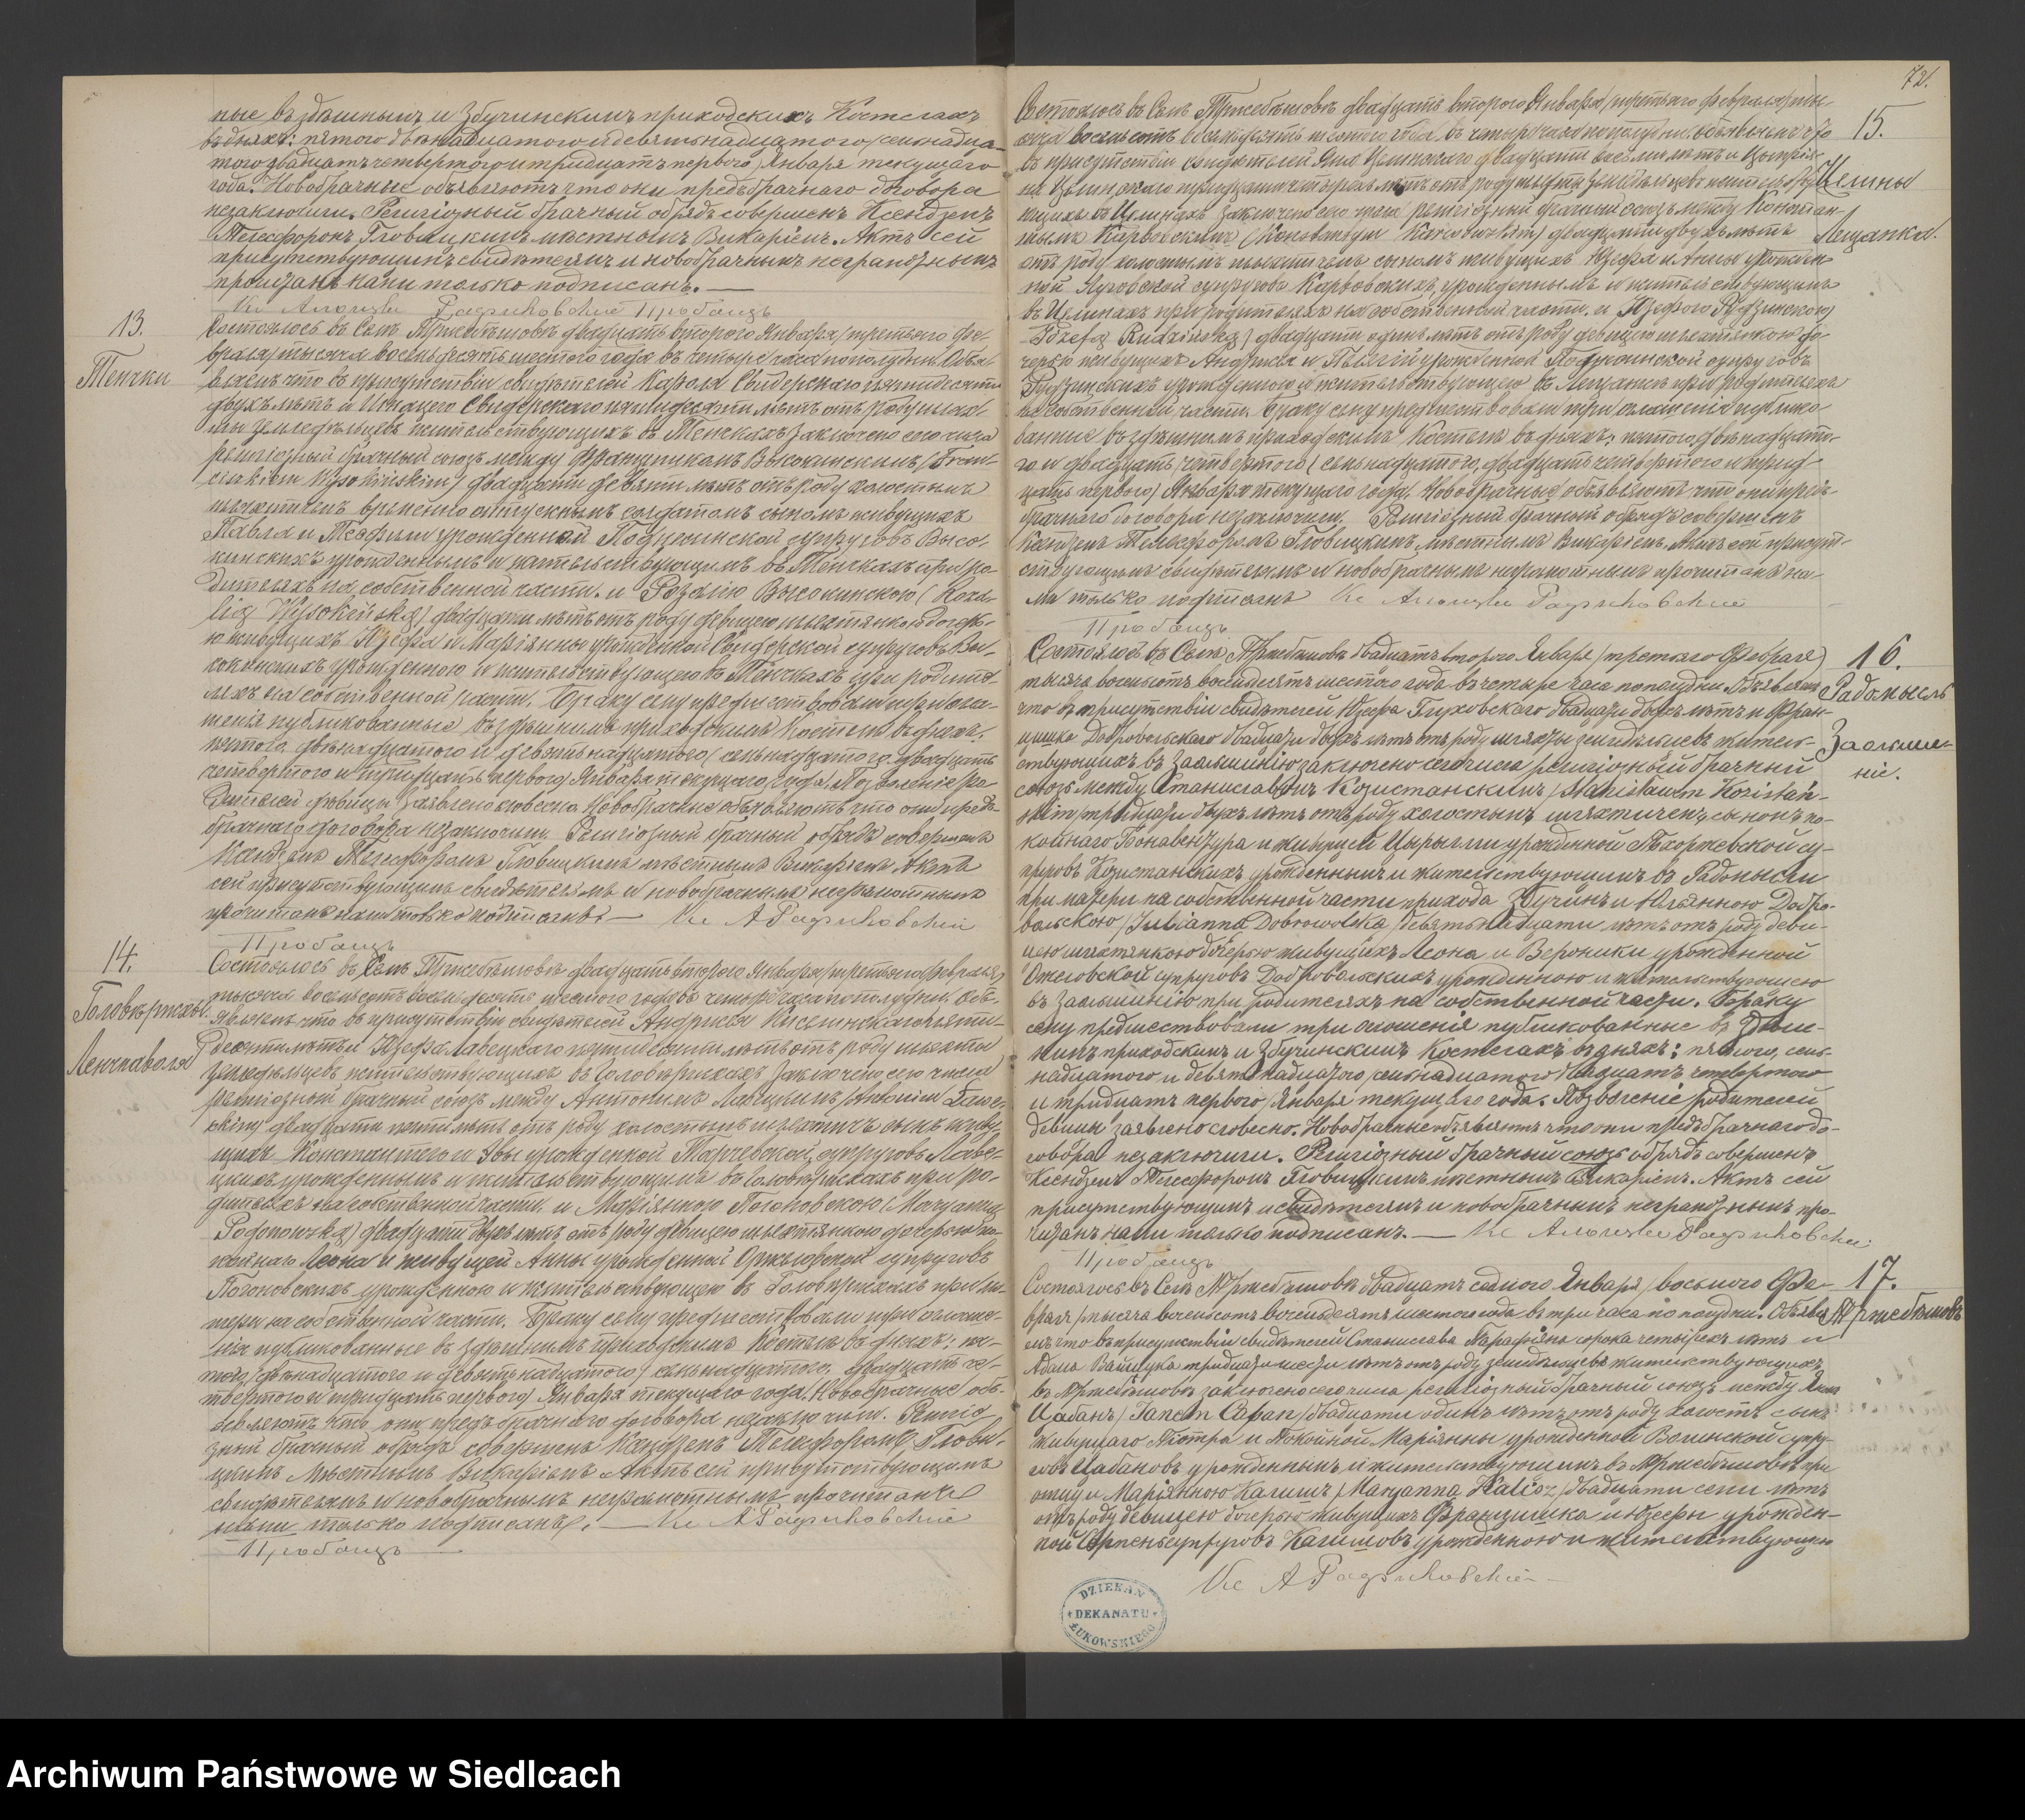 ные въ здѣшнымъ и Збучинскимъ приходскихъ Костелахъ
въ дняхъ: пятого двѣнадцатого и девятьнадцатого /семнадца-
того двадцать четвертого и тридцать первого/ Января текущаго
года. Новобрачные объявляютъ что они предъбрачнаго договора
незаключили. Религіозный брачный обрядъ совершенъ Ксендземъ
Телесфоромъ Гловицкимъ мѣстнымъ Викаріемъ. Актъ сей
присутствующимъ свидѣтелямъ и новобрачнымъ неграмотнымъ
прочитанъ нами только подписанъ.
Пробощъ
13.
Тенчки
Состоялось въ Селѣ Тржебешовѣ двадцать второго Января /третьего Фе-
враля/ тысяча восемьдесятъ шестого года въ четыре часа пополудни. Объя-
вляемъ что въ присутствіи свидѣтелей Кароля Свидерскаго пятидесяти
двухъ лѣтъ и Игнацего Свидерскаго пятидесяти лѣтъ отъ роду шлях-
ты земледѣльцевъ жительствующихъ въ Тенчкахъ заключено сего числа
религіозный брачный союзъ между Францишкомъ Высокинскимъ /Fran-
ciszkiem Wysokińskim/ двадцати девяти лѣтъ отъ роду холостымъ
шляхтичемъ временно отпускнымъ солдатомъ сыномъ живущихъ
Павла и Теофили урожденной Подцюинской супруговъ Высо-
кинскихъ урожденнымъ и жительствующимъ въ Тенчкахъ при ро-
дителяхъ на собственной части. и Розалію Высокинскою /Roza-
lią Wysokińską/ двадцати лѣтъ отъ роду девицею шляхтянкою дочерь-
ю живущихъ Юзефа и Маріянны урожденной Свидерской супруговъ Вы-
сокинскихъ урожденною и жительствующею въ Тенчкахъ при родите-
ляхъ на собственной части. Браку сему предшествовали три огла-
шенія публикованные въ здѣшнимъ приходскимъ Костелѣ въ дняхъ:
пятого, двѣнадцатого и девятьнадцатого /семьнадцатого двадцать
четвертого и тридцать первого/ Января текущаго года. Позволеніе ро-
дителей девицы заявлено словесно. Новобрачные объявляютъ что они предъ-
брачнаго договора незаключили. Религіозный брачный обрядъ совершенъ
Ксендземъ Телесфоромъ Гловицкимъ мѣстнымъ Викаріемъ. Актъ
сей присутствующимъ свидѣтелямъ и новобрачнымъ неграмотнымъ
прочитанъ нами только подписанъ
Пробощъ
14.
Состоялось въ Селѣ Тржебешовѣ двадцать второго Января /третьего Февраля/
тысяча восемьсотъ восемьдесятъ шестого года въ четыре часа пополудни. Объ-
являемъ что въ присутствіи свидѣтелей Андржея Киселинскаго пяти-
десяти лѣтъ и Юзефа Лавецкаго пятидесяти лѣтъ отъ роду шляхты
земледѣльцевъ жительствующихъ въ заключено сего числа
религіозный брачный союзъ между Антонимъ Лавецкимъ /Antonim Ławe-
ckim/ двадцати пяти лѣтъ отъ роду холостымъ шляхтичъ сынъ живу-
щихъ Константего и Эвы урожденной супруговъ Лавец-
кихъ урожденнымъ и жительствующимъ въ при ро-
дителяхъ на собственной части. и Маріянною /Maryanną
двадцати двухъ лѣтъ отъ роду девицею шляхтянкою дочерью по-
койнаго Леона и живущей Анны урожденной супруговъ
урожденною и жительствующею въ при ма-
тери на собственной части. Браку сему предшествовали три оглаше-
нія публикованные въ здѣшнымъ приходскимъ Костелѣ въ дняхъ: пя-
того, двѣнадцатого и девятьнадцатого /семьнадцатого, двадцать че-
твертого и тридцать первого/ Января текущаго года. Новобрачные объ-
являютъ что они предъбрачнаго договора незаключили. Религіо-
зный брачный обрядъ совершенъ Ксендземъ Телесфоромъ Глови-
цкимъ мѣстнымъ Викаріемъ. Актъ сей присутствующимъ
свидѣтелямъ и новобрачнымъ неграмотнымъ прочитанъ
нами только подписанъ.
Пробощъ
72.
15.
Целины
Лещанка.
Состоялось въ Селѣ Тржебешовѣ двадцать второго Января /третьяго февраля/ ты-
сяча восемьсотъ восемьдесятъ шестого года въ четыре часа пополудни. Объявляемъ что
въ присутствіи свидѣтелей Яна Целинскаго двадцати восьми лѣтъ и
Целинскаго тридцати лѣтъ отъ роду шляхты земледѣльцевъ
въ Целинахъ заключено сего числа религіозный брачный союзъ между Констан-
тымъ Карвовскимъ /Konstantym Karwowskim/ двадцати двухъ лѣтъ
отъ роду холостымъ шляхтичемъ сыномъ живущихъ Юзефа и Анны урожден-
ной супруговъ Карвовскихъ урожденнымъ и жительствующимъ
въ Целинахъ при родителяхъ на собственной части. и Юзефою Рудзинскою
/Józefą Rudzińską/ двадцати одинъ лѣтъ отъ роду девицею шляхтянкою до-
черью живущихъ Андржея и урожденной супруговъ
Рудзинскихъ урожденною и жительствующею въ Лещанкѣ при родителяхъ
на собственной части. Браку сему предшествовали три оглашенія публико-
ванные въ здѣшнимъ приходскимъ Костелѣ въ дняхъ: пятого, двѣнадцато-
го и двадцать четвертого /семьнадцатого, двадцать четвертого и трид-
цать первого/ Января текущаго года. Новобрачные объявляютъ что они предъ-
брачнаго договора незаключили. Религіозный брачный обрядъ совершенъ
Ксендземъ Телесфоромъ Гловицкимъ, мѣстнымъ Викаріемъ. Актъ сей присут-
ствующимъ свидѣтелямъ и новобрачнымъ неграмотнымъ прочитанъ на-
ми только подписанъ
Пробощъ
16.
Радомысль
Заольше-
ніе.
Состоялось въ Селѣ Тржебешовѣ двадцать второго Января /третьяго Февраля/
тысяча восемьсотъ восемьдесятъ шестого года въ четыре часа пополудни. Объявляемъ
что въ присутствіи свидѣтелей Юзефа Глуховскаго двадцати двухъ лѣтъ и Фран-
цишка Добровольскаго двадцати двухъ лѣтъ отъ роду шляхты земледѣльцевъ житель-
ствующихъ въ заключено сего числа религіозный брачный
союзъ между Станиславомъ Козистанскимъ /Stanisławem Kozistań-
skim/ тридцати двухъ лѣтъ отъ роду холостымъ шляхтичемъ, сыномъ по-
койнаго Бонавентура и живущей урожденной Тхоржевской су-
пруговъ Козистанскихъ урожденнымъ и жительствующимъ въ Радомысли
при матери на собственной части прихода Збучинъ и Юліянною Добро-
вольскою /Julianną Dobrowolską/ девятьнадцати лѣтъ отъ роду деви-
цею шляхтянкою дочерью живущихъ Леона и Вероники урожденной
супруговъ Добровольскихъ урожденною и жительствующею
въ при родителяхъ на собственной части. Браку
сему предшествовали три оглашенія публикованные въ здѣш-
нимъ приходскимъ и Збучинскимъ Костелахъ въ дняхъ: пятого, семь-
надцатого и девятьнадцатого /семьнадцатого двадцать четвертого
и тридцать первого/ Января текущаго года. Позволеніе родителей
девицы заявлено словесно. Новобрачные объявляютъ что они предъбрачнаго до-
говора незаключили. Религіозный брачный союзъ обрядъ совершенъ
Ксендземъ Телесфоромъ Гловицкимъ мѣстнымъ Викаріемъ. Актъ сей
присутствующимъ свидѣтелямъ и новобрачнымъ неграмотнымъ про-
читанъ нами только подписанъ.
Пробощъ
17.
Тржебешовъ
Состоялось въ Селѣ Тржебешовѣ двадцать седмого Января /восьмого Фе-
враля/ тысяча восемьсотъ восемьдесятъ шестого года въ три часа по полудни. Объявля-
емъ что въ присутствіи свидѣтелей Станислава сорока четырехъ лѣтъ и
Адама тридцати шести лѣтъ отъ роду земледѣльцевъ жительствующихъ
въ Тржебешовѣ заключено сего числа религіозный брачный союзъ между Яномъ
Цабанъ /Janem Caban/ двадцати одинъ лѣтъ отъ роду холостъ сынъ
живущаго Піотра и покойной Маріянны урожденной супру-
говъ Цабановъ урожденнымъ и жительствующимъ въ Тржебешовѣ при
отцу и Маріянною Калишъ /Maryanną Kalisz/ двадцати семи лѣтъ
отъ роду девицею дочерью живущихъ Францишка и Юзефы урожден-
ной супруговъ Калишовъ урожденною и жительствующею
DZIEKAN
DEKANATU
ŁUKOWSKIEGO
Archiwum Państwowe w Siedlcach